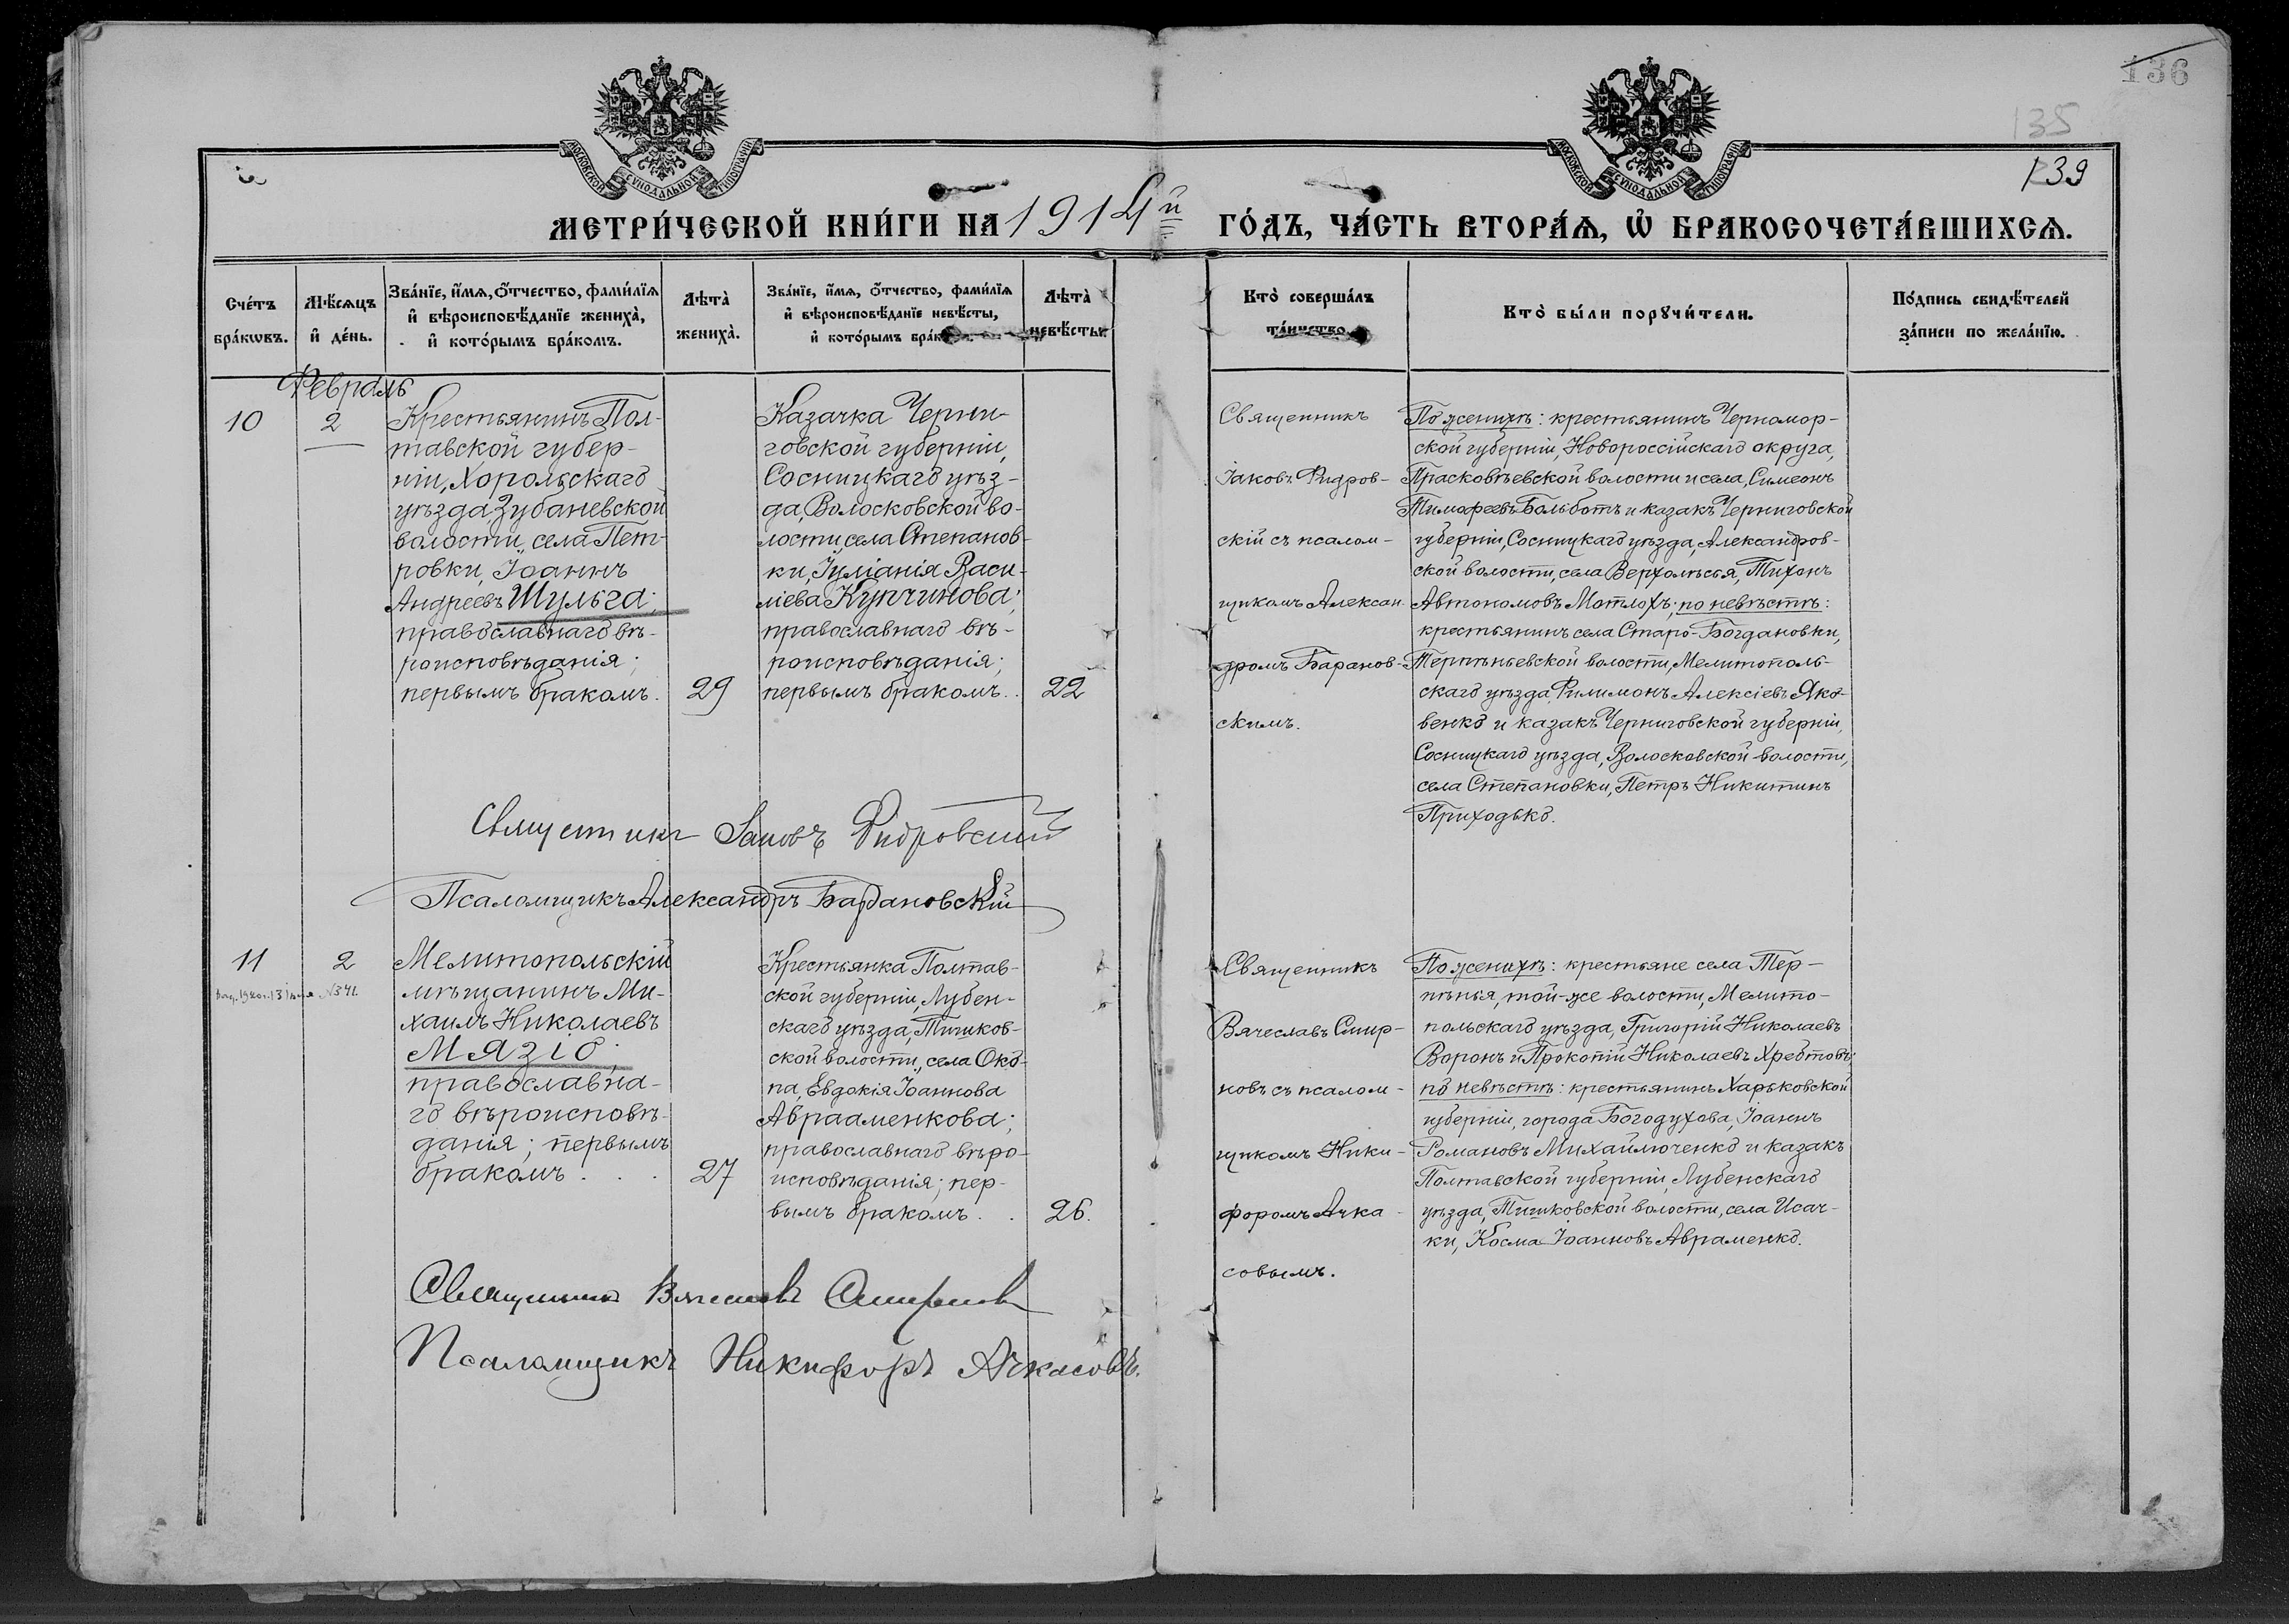 136
135
139
МОСКОВСКОЙ СѴНОДАЛЬНОЙ ТИПОГРАФІИ
МОСКОВСКОЙ СѴНОДАЛЬНОЙ ТИПОГРАФІИ
МЕТРИ́ЧЕСКОЙ КНИ́ГИ НА 1914й ГО́ДЪ, ЧА́СТЬ ВТОРА́Ѧ, Ѡ҆ БРАКОСОЧЕТА́ВШИХСѦ.
Сче́тъ
бра́кѡвъ.
Мѣ́сѧцъ
и҆ де́нь.
Зва́нїе, и҆́мѧ, ѻ҆́тчество, фами́лїѧ
и҆ вѣроисповѣ́данїе жениха̀,
и҆ кото́рымъ бра́комъ.
Лѣта̀
жениха̀.
Зва́нїе, и҆́мѧ, ѻ҆́тчество, фами́лїѧ
и҆ вѣроисповѣ́данїе невѣ́сты,
и҆ кото́рымъ бра́к
Лѣта̀
невѣ́сты.
Кто̀ соверша́лъ
та́инство.
Кто̀ бы́ли порꙋчи́тели.
По́дпись свидѣ́телей
за́писи по жела́нїю.
Февраль
10
2
Крестьянинъ Пол-
тавской губер-
ніи, Хорольскаго
уѣзда, Зубаневской
волости, села Пет-
ровки, Іоаннъ
Андреевъ Шульга;
православнаго вѣ-
роисповѣданія;
первымъ бракомъ.
29
Казачка Черни-
говской губерніи,
Сосницкаго уѣз-
да, Волосковской во-
лости, села Степанов-
ки, Іуліанія Васи-
ліева Купчинова;
православнаго вѣ-
роисповѣданія;
первымъ бракомъ..
22
Священникъ
Іаковъ Фидров-
скій съ псалом-
щикомъ Алексан-
дромъ Баранов-
скимъ.
По женихѣ: крестьянинъ Черномор-
ской губерніи, Новороссійскаго округа,
Прасковѣевской волости и села, Симеонъ
Тимофеевъ Больботъ и казакъ Черниговской
губерніи, Сосницкаго уѣзда, Александров-
ской волости, села Верхолѣсья, Тихонъ
Автономовъ Мотлохъ; по невѣстѣ:
крестьянинъ села Старо-Богдановки,
Терпѣньевской волости, Мелитополь-
скаго уѣзда, Филимонъ Алексіевъ Яко-
венко и казакъ Черниговской губерніи,
Сосницкаго уѣзда, Волосковской волости,
села Степановки, Петръ Никитинъ
Приходько.
Священникъ Іаковъ Фидровскій
Псаломщикъ Александръ Барановскій
11
2
№341.
Мелитопольскій
мѣщанинъ Ми-
хаилъ Николаевъ
Мязіо;
православна-
го вѣроисповѣ-
данія; первымъ
бракомъ . . .
27
Крестьянка Полтав-
ской губерніи, Лубен-
скаго уѣзда, Тишков-
ской волости, села Око-
па, Евдокія Іоаннова
Авраменкова;
православнаго вѣро-
исповѣданія; пер-
вымъ бракомъ . .
26.
Священникъ
Вячеславъ Смир-
новъ съ псалом-
щикомъ Ники-
форомъ Ачка-
совымъ.
По женихѣ: крестьяне села Тер-
пѣнья, той-же волости, Мелито-
польскаго уѣзда, Григорій Николаевъ
Воронъ и Прокопій Николаевъ Хребтовъ;
по невѣстѣ: крестьянинъ Харьковской
губерніи, города Богодухова, Іоаннъ
Романовъ Михайлюченко и казакъ
Полтавской губерніи, Лубенскаго
уѣзда, Тишковской волости, села Исач-
ки, Косма Іоанновъ Авраменко.
Священникъ Вячеславъ Смирновъ
Псаломщикъ Никифоръ Ачкасовъ.